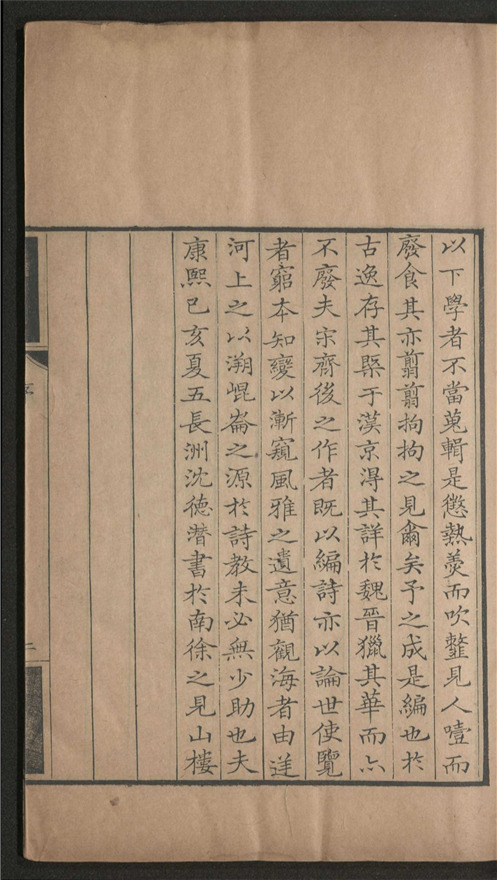 以下學者不當蒐輯是懲熱羹而吹韲見人噎而
廢食其亦翦翦拘拘之見爾矣予之成是編也於
古逸存其槩于漢京得其詳於魏晉獵其華而亦
不廢夫宋齊後之作者既以編詩亦以論世使覽
者窮本知變以漸窺風雅之遺意猶觀海者由逆
河上之以溯崐崙之源於詩教未必無少助也夫
康熙己亥夏五長洲沈德潛書於南徐之見山樓